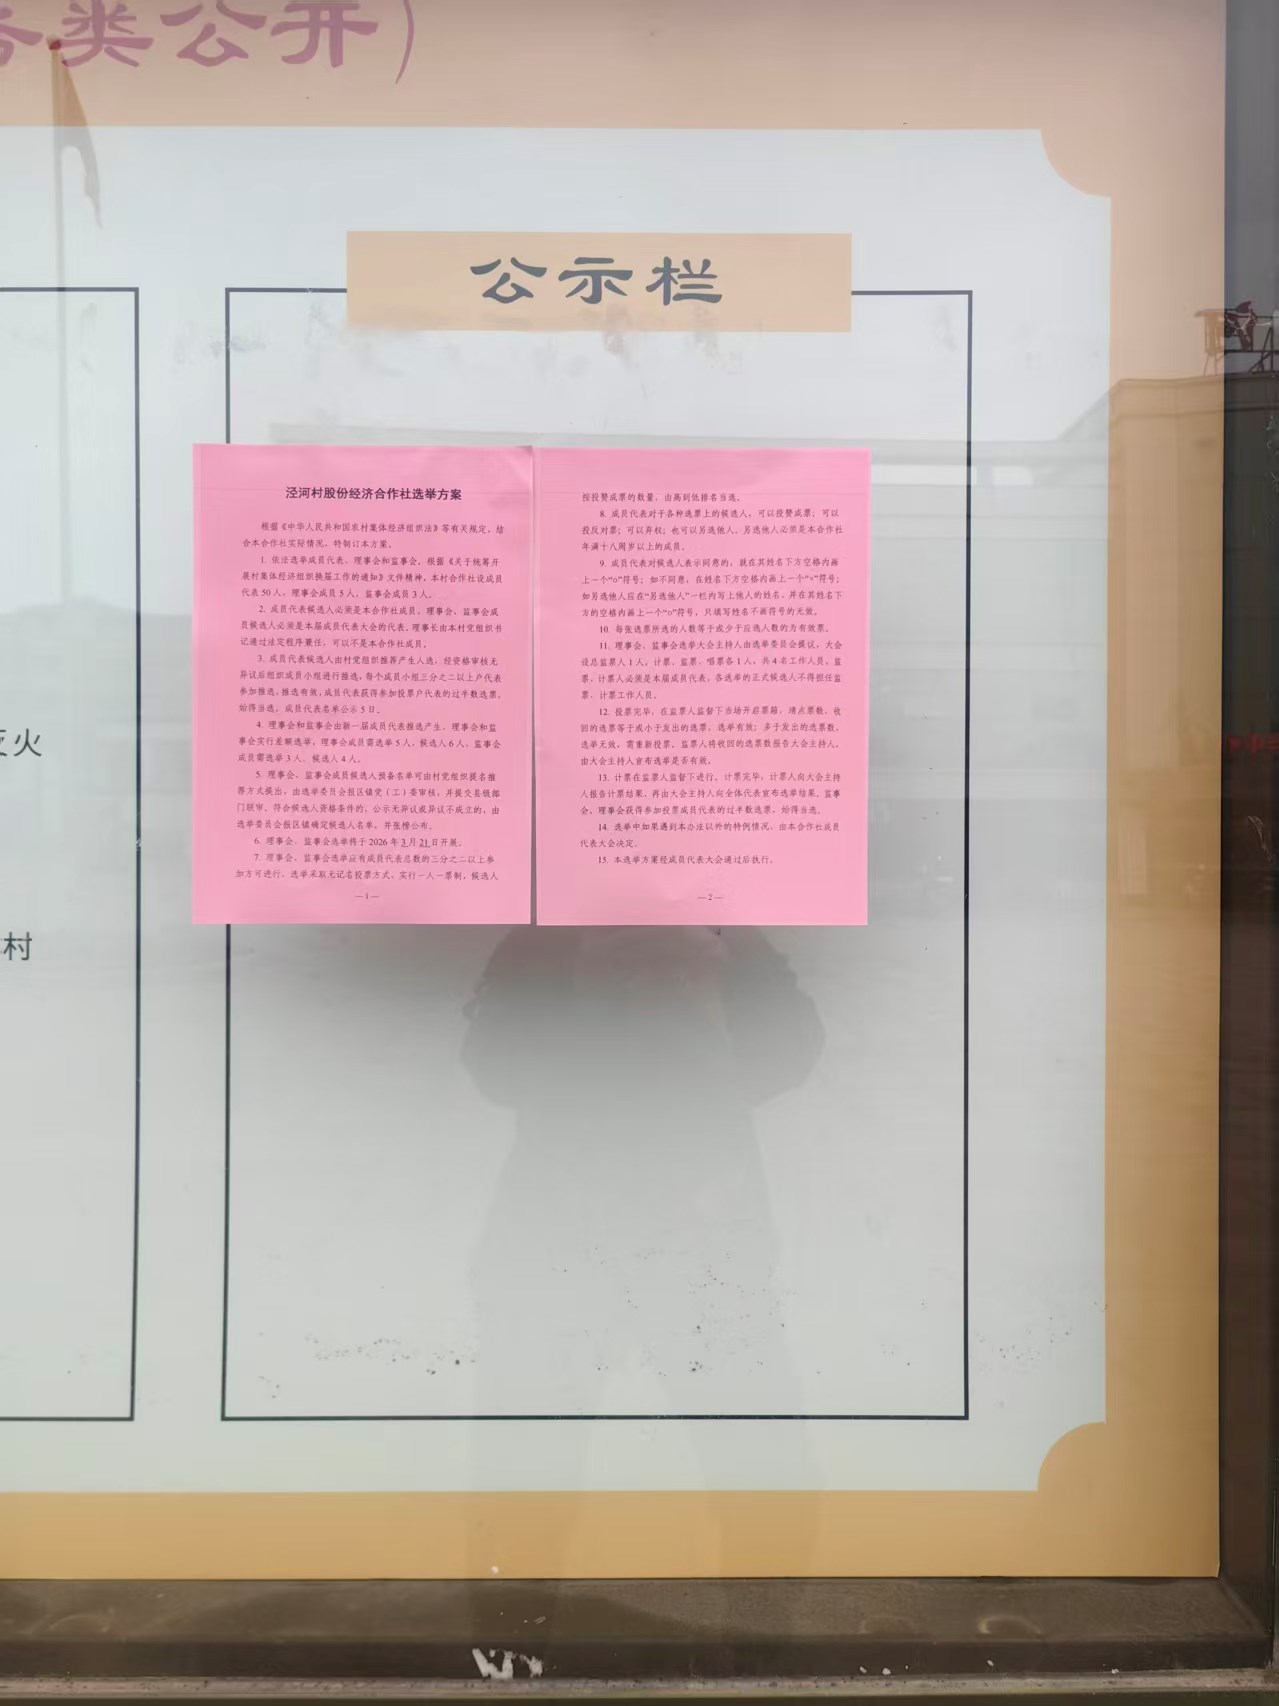 务类公开)
公示栏
灭火
村
泾河村股份经济合作社选举方案
根据《中华人民共和国农村集体经济组织法》等有关规定，结
合本合作社实际情况，特制订本方案。
1. 依法选举成员代表、理事会和监事会。根据《关于统筹开
展村集体经济组织换届工作的通知》文件精神，本村合作社设成员
代表 50 人，理事会成员 5 人，监事会成员 3 人。
2. 成员代表候选人必须是本合作社成员，理事会、监事会成
员候选人必须是本届成员代表大会的代表。理事长由本村党组织书
记通过法定程序兼任，可以不是本合作社成员。
3. 成员代表候选人由村党组织推荐产生人选，经资格审核无
异议后组织成员小组进行推选，每个成员小组三分之二以上户代表
参加推选，推选有效，成员代表获得参加投票户代表的过半数选票，
始得当选。成员代表名单公示 5 日。
4. 理事会和监事会由新一届成员代表推选产生。理事会和监
事会实行差额选举，理事会成员需选举 5 人，候选人 6 人，监事会
成员需选举 3 人，候选人 4 人。
5. 理事会、监事会成员候选人预备名单可由村党组织提名推
荐方式提出，由选举委员会报区镇党（工）委审核，并提交县级部
门联审。符合候选人资格条件的，公示无异议或异议不成立的，由
选举委员会报区镇确定候选人名单，并张榜公布。
6. 理事会、监事会选举将于 2026 年 3 月 21 日开展。
7. 理事会、监事会选举应有成员代表总数的三分之二以上参
加方可进行。选举采取无记名投票方式，实行一人一票制，候选人
—1—
按投赞成票的数量，由高到低排名当选。
8. 成员代表对于各种选票上的候选人，可以投赞成票；可以
投反对票；可以弃权；也可以另选他人。另选他人必须是本合作社
年满十八周岁以上的成员。
9. 成员代表对候选人表示同意的，就在其姓名下方空格内画
上一个“○”符号；如不同意，在姓名下方空格内画上一个“×”符号；
如另选他人应在“另选他人”一栏内写上他人的姓名，并在其姓名下
方的空格内画上一个“○”符号，只填写姓名不画符号的无效。
10. 每张选票所选的人数等于或少于应选人数的为有效票。
11. 理事会、监事会选举大会主持人由选举委员会提议，大会
设总监票人 1 人，计票、监票、唱票各 1 人，共 4 名工作人员，监
票、计票人必须是本届成员代表。各选举的正式候选人不得担任监
票、计票工作人员。
12. 投票完毕，在监票人监督下当场开启票箱，清点票数。收
回的选票等于或小于发出的选票，选举有效；多于发出的选票数，
选举无效，需重新投票。监票人将收回的选票数报告大会主持人，
由大会主持人宣布选举是否有效。
13. 计票在监票人监督下进行。计票完毕，计票人向大会主持
人报告计票结果，再由大会主持人向全体代表宣布选举结果。监事
会、理事会获得参加投票成员代表的过半数选票，始得当选。
14. 选举中如果遇到本办法以外的特例情况，由本合作社成员
代表大会决定。
15. 本选举方案经成员代表大会通过后执行。
—2—